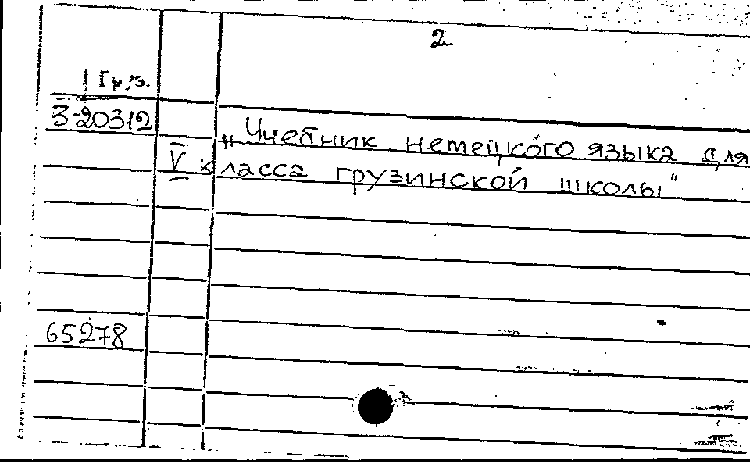 2
Груз.
3-20312
„Учебник немецкого языка для
V класса грузинской школы"
65278